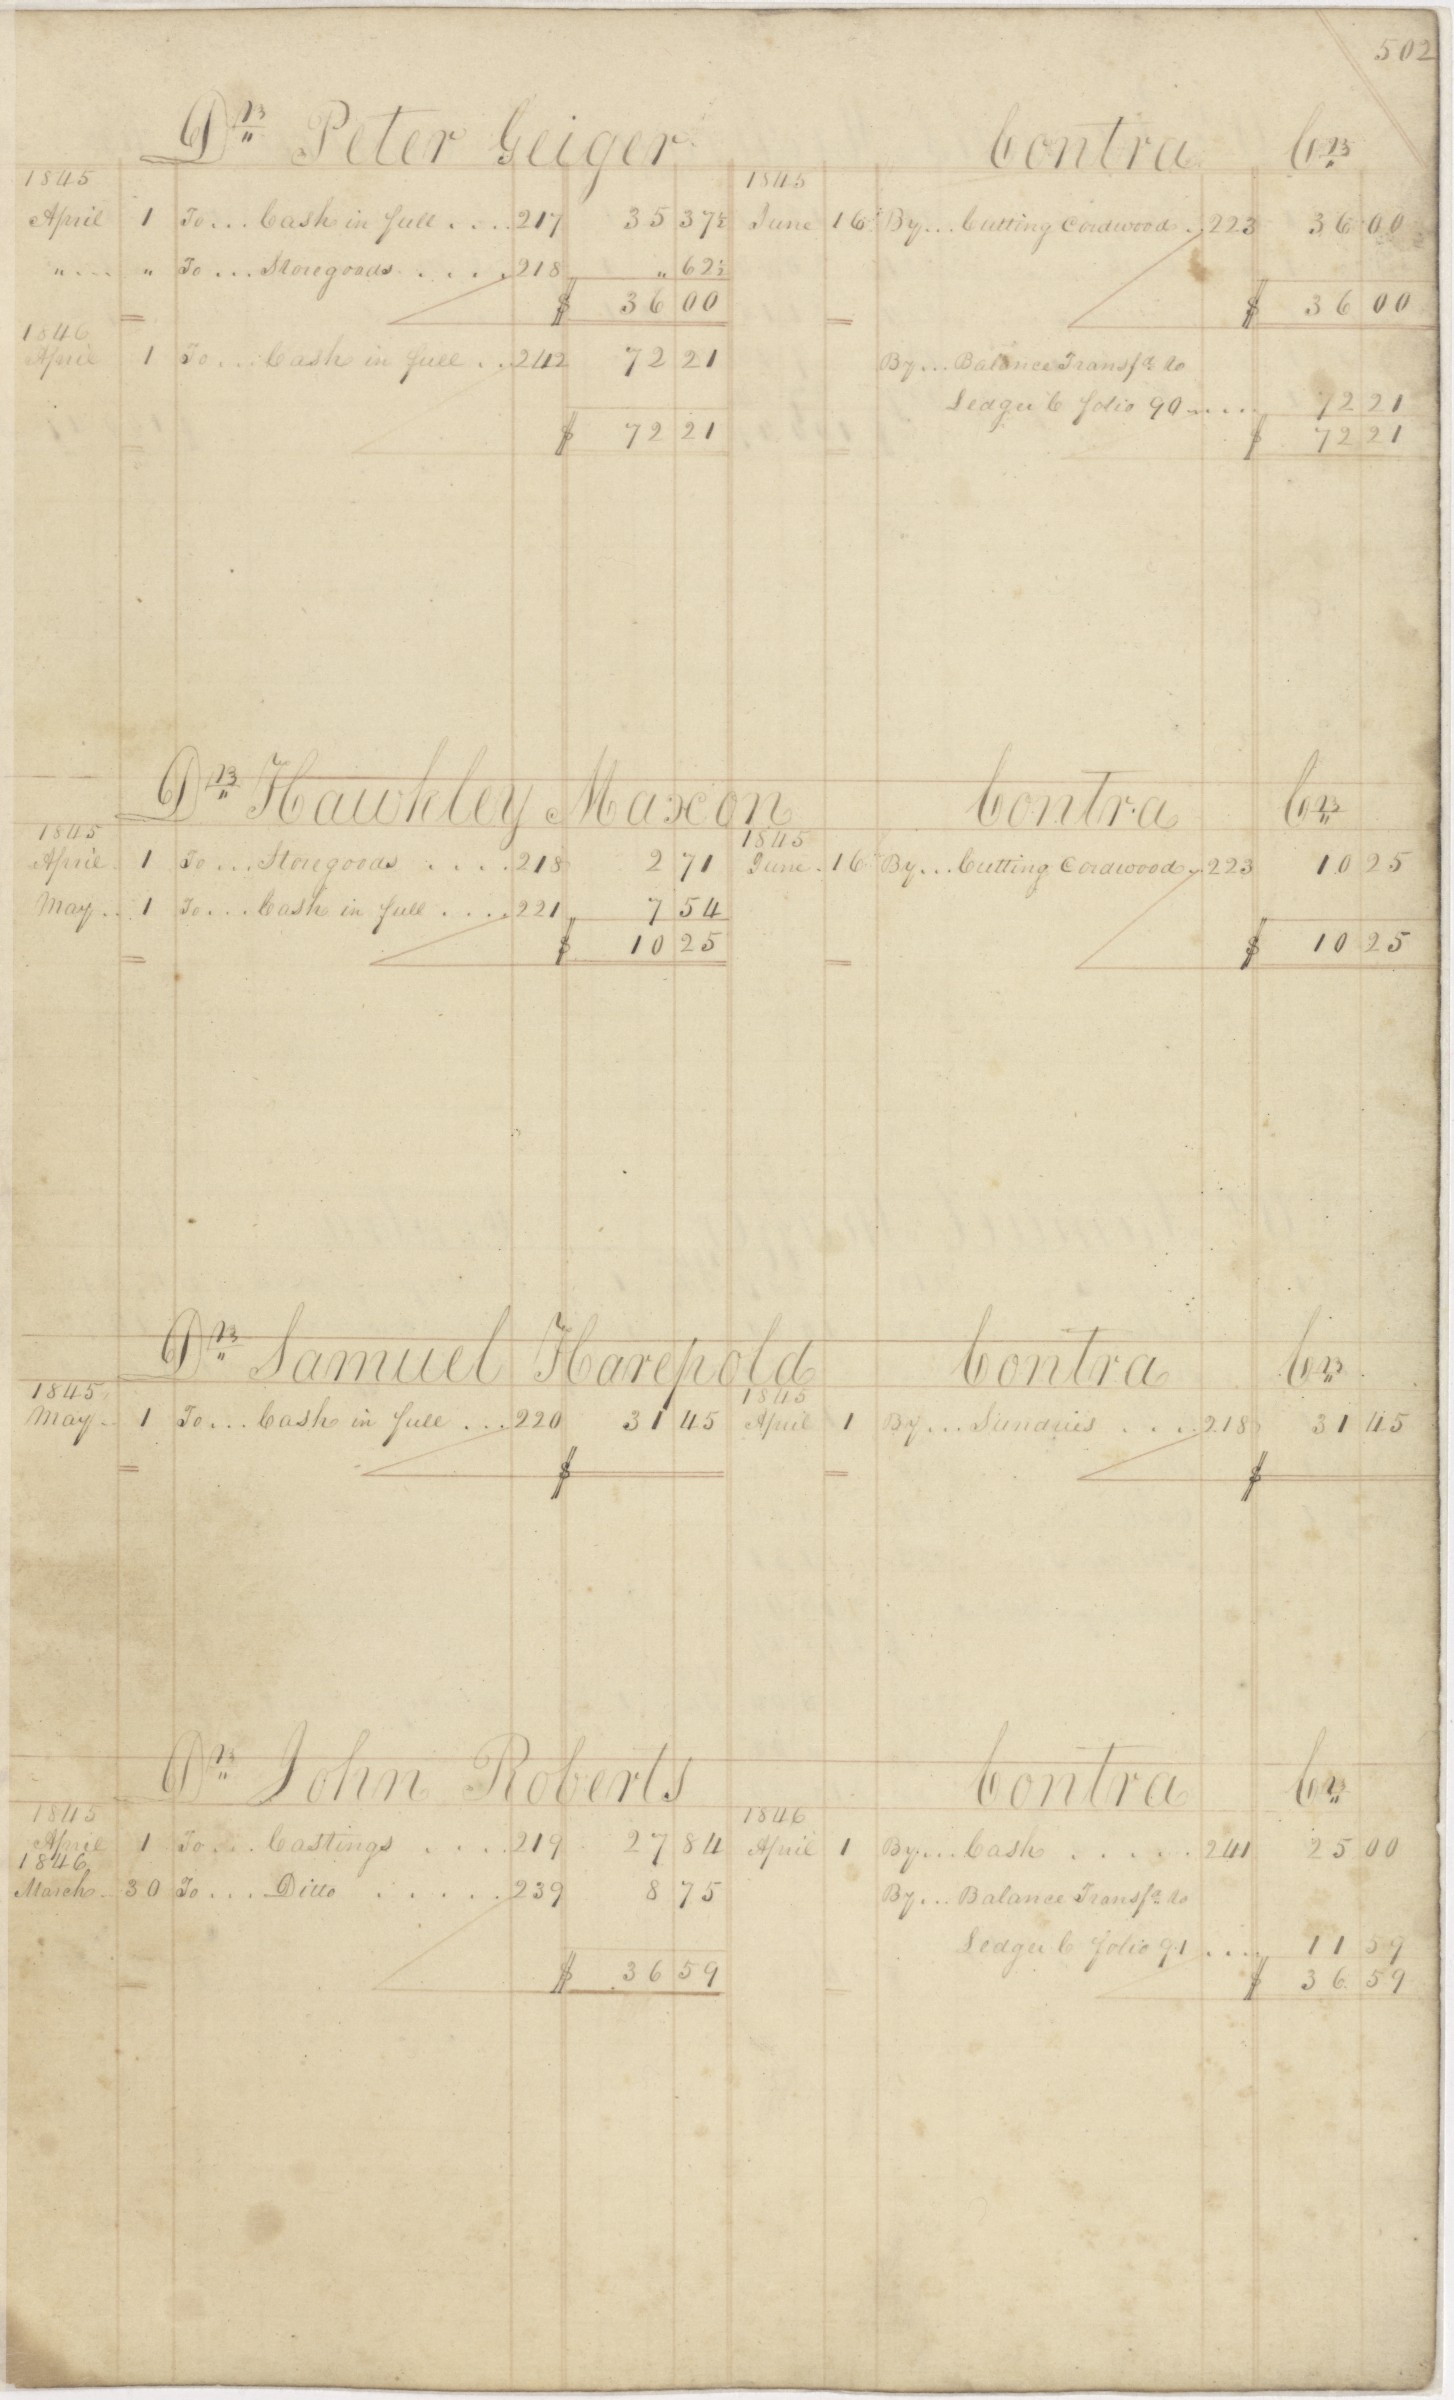 502
Dr Peter Geiger Contra Cr
1845 1845
April 1 To... Cash in full .... 217 35 37½ June 16 By... Cutting Cordwood .. 223 36 00
".... " To... Storegoods .... 218 " 62½
$ 36 00 $ 36 00
1846
April 1 To... Cash in full .. 242 72 21 By... Balance Transfd to
Ledger C folio 90 .... 72 21
$ 72 21 $ 72 21
Dr Hawkley Maxon Contra Cr
1845 1845
April 1 To... Storegoods .... 218 2 71 June . 16 By... Cutting Cordwood .. 223 10 25
May .. 1 To... Cash in full .... 221 7 54
$ 10 25 $ 10 25
Dr Samuel Harepold Contra Cr
1845 1845
May .. 1 To... Cash in full ... 220 31 45 April 1 By... Sundries .... 218 31 45
$ $
Dr John Roberts Contra Cr
1845 1846
April 1 To... Castings .... 219 27 84 April 1 By... Cash ..... 241 25 00
1846
March . 30 To... Ditto ..... 239 8 75 By... Balance Transfd to
Ledger C folio 91 .... 11 59
$ 36 59 $ 36 59